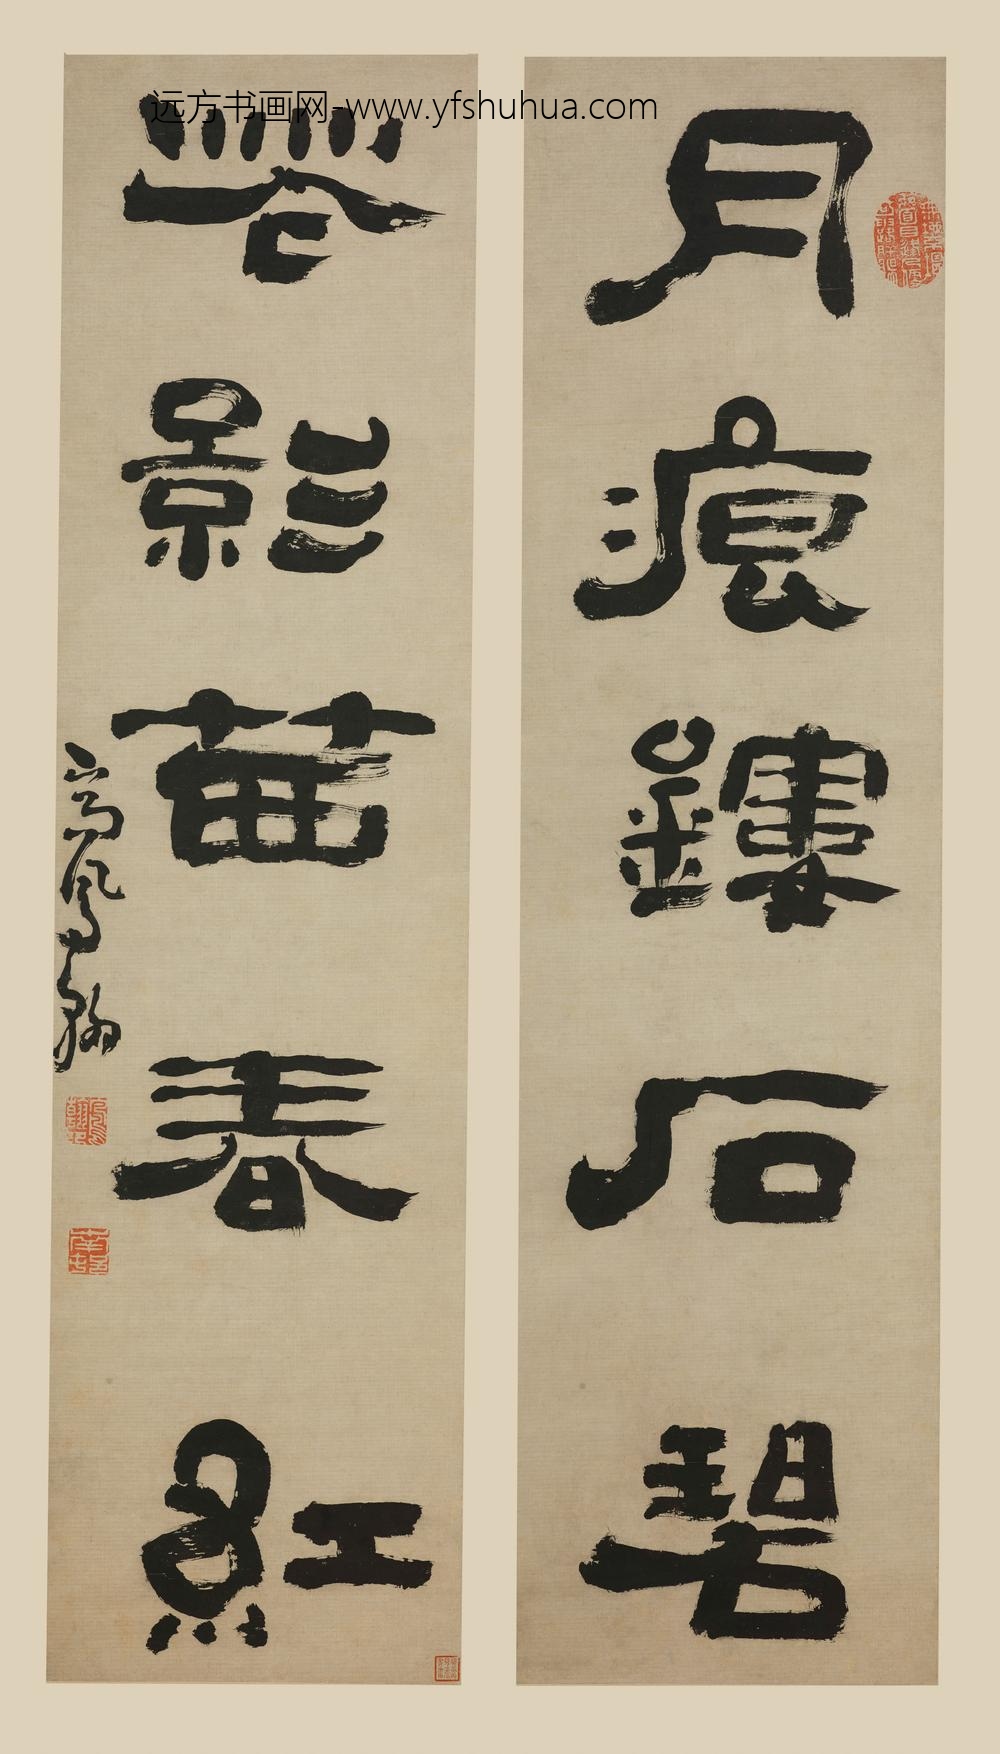 远方书画网-www.yfshuhua.com
月痕鏤石碧
華影苗春紅
高鳳翰